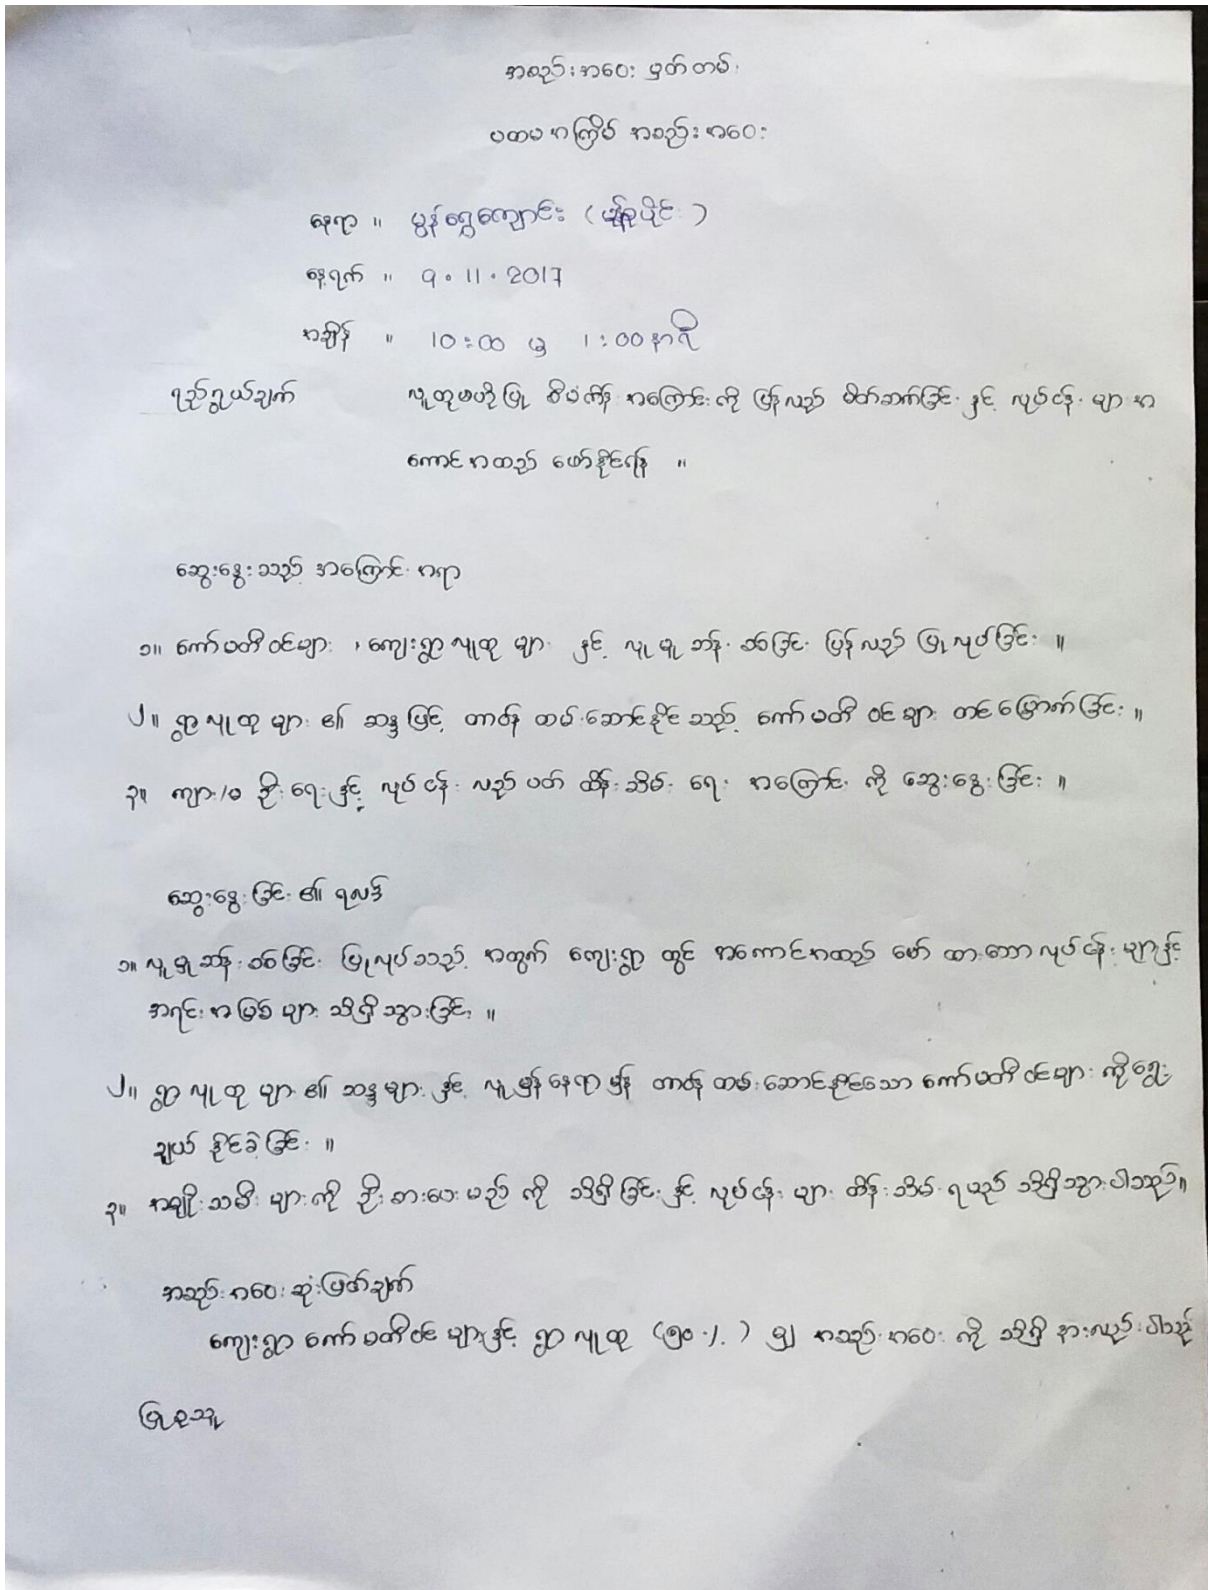 အစည်းအဝေး မှတ်တမ်း
ပထမအကြိမ် အစည်းအဝေး
နေရာ ။ မွန်ရွှေကျောင်း (
နေ့ရက် ။ 9.11.2017
အချိန် ။ 10:00 မှ 1:00 နာရီ
ရည်ရွယ်ချက် လူထုဗဟိုပြု စီမံကိန်း အကြောင်းကို ပြန်လည် မိတ်ဆက်ခြင်း နှင့် လုပ်ငန်းများအ
ကောင်အထည် ဖော်နိုင်ရန် ။
ဆွေးနွေးသည့် အကြောင်းအရာ
၁။ ကော်မတီဝင်များ ၊ ကျေးရွာလူထုများ နှင့် လူမှုဆန်းစစ်ခြင်း ပြန်လည် ပြုလုပ်ခြင်း ။
၂။ ရွာလူထုများ ၏ ဆန္ဒဖြင့် တာဝန် ထမ်းဆောင်နိုင်သည့် ကော်မတီ ဝင်များ တင်မြှောက်ခြင်း ။
၃။ ကျား/မ ဦးရေနှင့် လုပ်ငန်း လည်ပတ် ထိန်းသိမ်းရေး အကြောင်း ကို ဆွေးနွေးခြင်း ။
ဆွေးနွေးခြင်း ၏ ရလဒ်
၁။ လူမှုဆန်းစစ်ခြင်း ပြုလုပ်သည့် အတွက် ကျေးရွာ တွင် အကောင်အထည် ဖော် ထားသော လုပ်ငန်းများနှင့်
အရင်းအမြစ် များ သိရှိသွားခြင်း ။
၂။ ရွာလူထုများ ၏ ဆန္ဒများ နှင့် လူမှန်နေရာမှန် တာဝန်ထမ်းဆောင်နိုင်သော ကော်မတီဝင်များ ကိုရွေး
ချယ် နိုင်ခဲ့ခြင်း ။
၃။ အမျိုးသမီးများကို ဦးစားပေးမည် ကို သိရှိခြင်းနှင့် လုပ်ငန်းများ ထိန်းသိမ်းရမည် သိရှိသွားပါသည်။
အစည်းအဝေးဆုံးဖြတ်ချက်
ကျေးရွာ ကော်မတီဝင် များနှင့် ရွာလူထု (၅၀%) ၍ အစည်းအဝေး ကို သိရှိ နားလည်ပါသည်
ပြုစုသူ